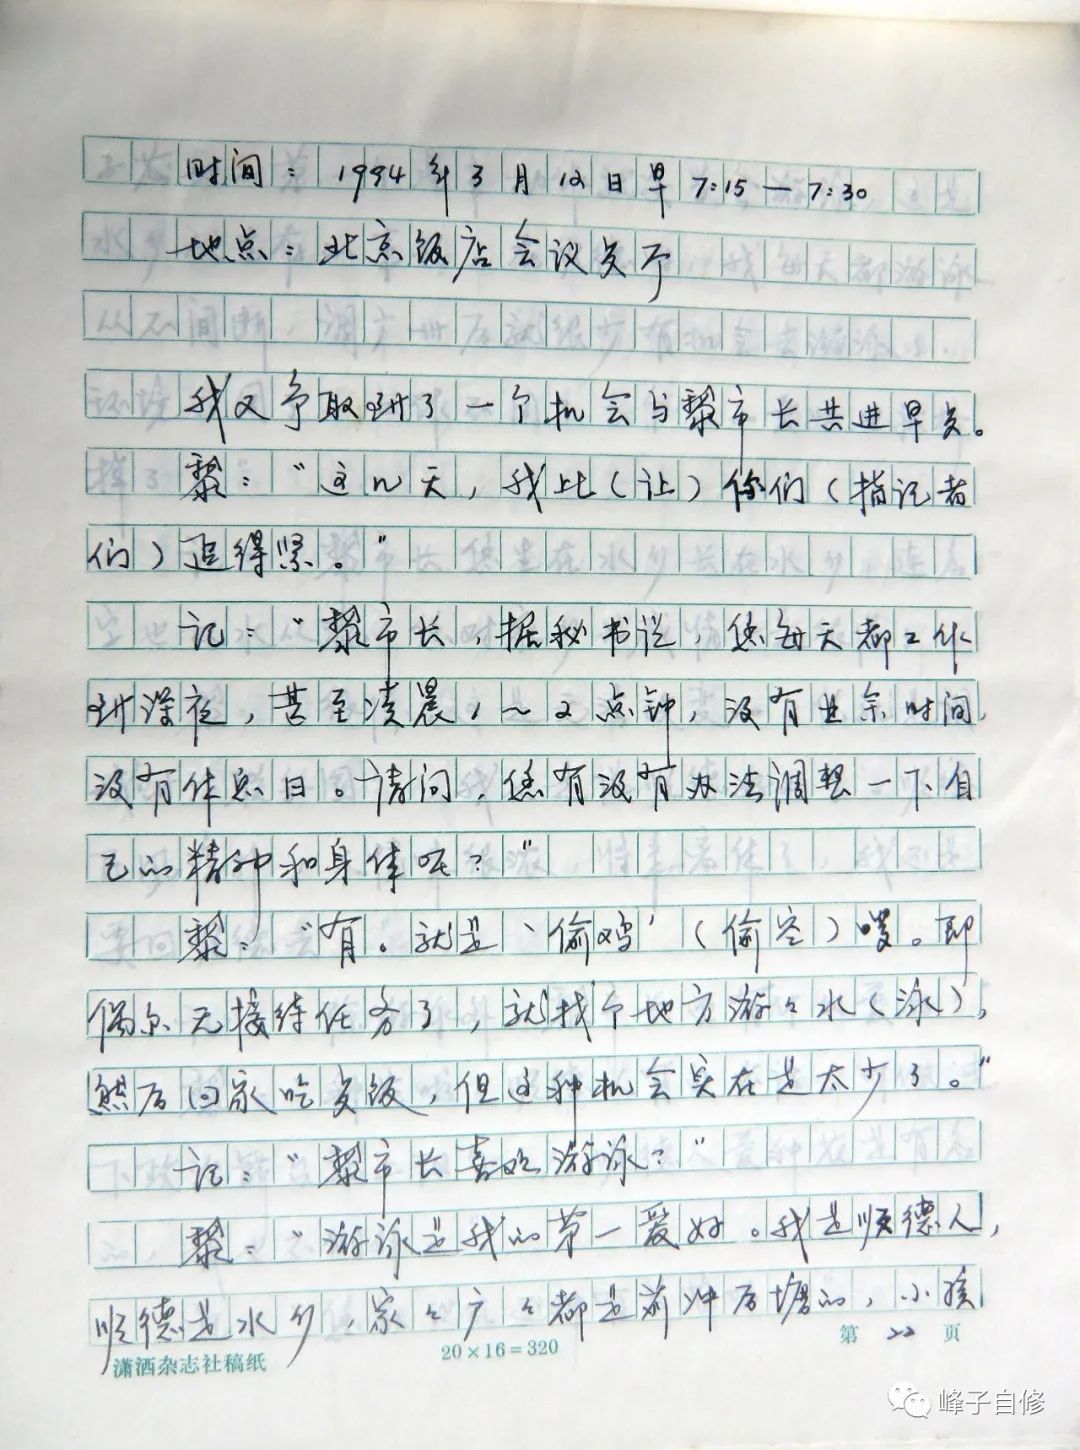 时间：1994年3月12日早7:15—7:30
地点：北京饭店会议歺厅
我又争取到了一个机会与黎市长共进早歺。
黎：“这几天，我比（让）你们（指记者
们）追得紧。”
记：“黎市长，据秘书说，您每天都工作
到深夜，甚至凌晨1～2点钟，没有业余时间，
没有休息日。请问，您有没有办法调整一下自
己的精神和身体呢？”
黎：“有。就是‘偷鸡’（偷空）啰。即
偶尔无接待任务了，就找个地方游々水（泳），
然后回家吃歺饭，但这种机会实在是太少了。”
记：“黎市长喜欢游泳？”
黎：“游泳是我的第一爱好。我是顺德人，
顺德是水乡，家々户々都是前冲后塘的，小孩
潇洒杂志社稿纸
20×16=320
第 22 页
峰子自修